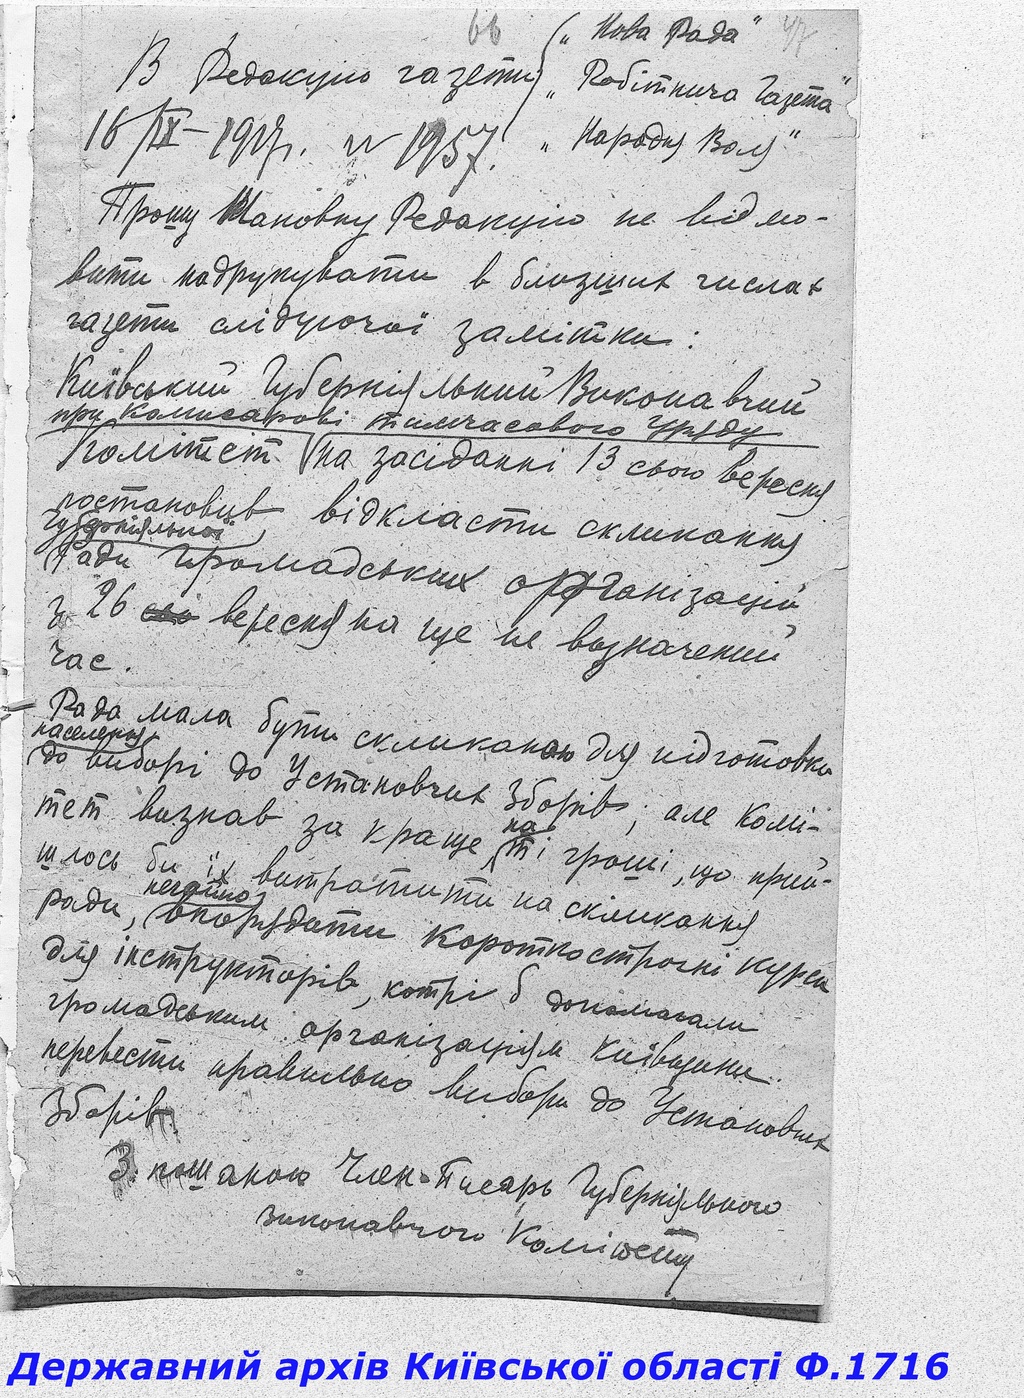 66
47
В Редакцию газети
„Нова Рада"
„Робітнича Газета"
„Народня Воля"
16/IX-1917р. N 1957.
Прошу Шановну Редакцію не відмо-
вити надрукувати в близших числах
газети слідуючої замітки:
Київський Губерніяльний Виконавчий
при Комисарові тимчасового Уряду
Комітет на засіданні 13 сього вересня
постановив відкласти скликання
Губерніяльної
Ради громадських організацій
з 26 вересня на ще не визначений
час.
Рада мала бути скликаною для підготовки
населення
до виборів до Установчих Зборів, але Комі-
тет визнав за краще на ті гроші, що прий-
шлось би їх витратити на скликання
негайно
ради, впорядити короткострочні курси
для інструкторів, котрі б допомагали
громадським організаціям Київщини
перевести правильно вибори до Установчих
Зборів.
З пошаною Член-Писарь Губерніяльного
виконавчого Комітету
Державний архів Київської області Ф.1716